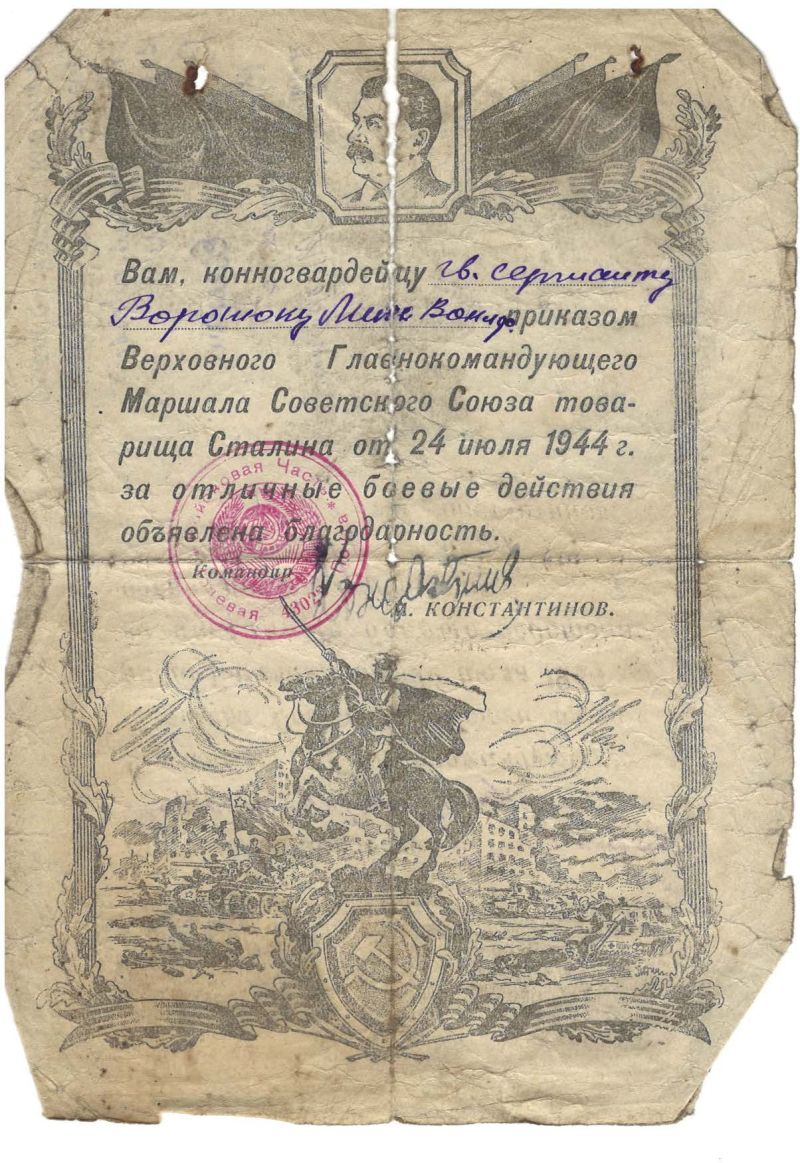 Вам, конногвардейцу гв. сержанту
Ворошоку приказом
Верховного Главнокомандующего
Маршала Советского Союза това-
рища Сталина от 24 июля 1944 г.
за отличные боевые действия
объявлена благодарность.
Командир
КОНСТАНТИНОВ.
Часть
Полевая